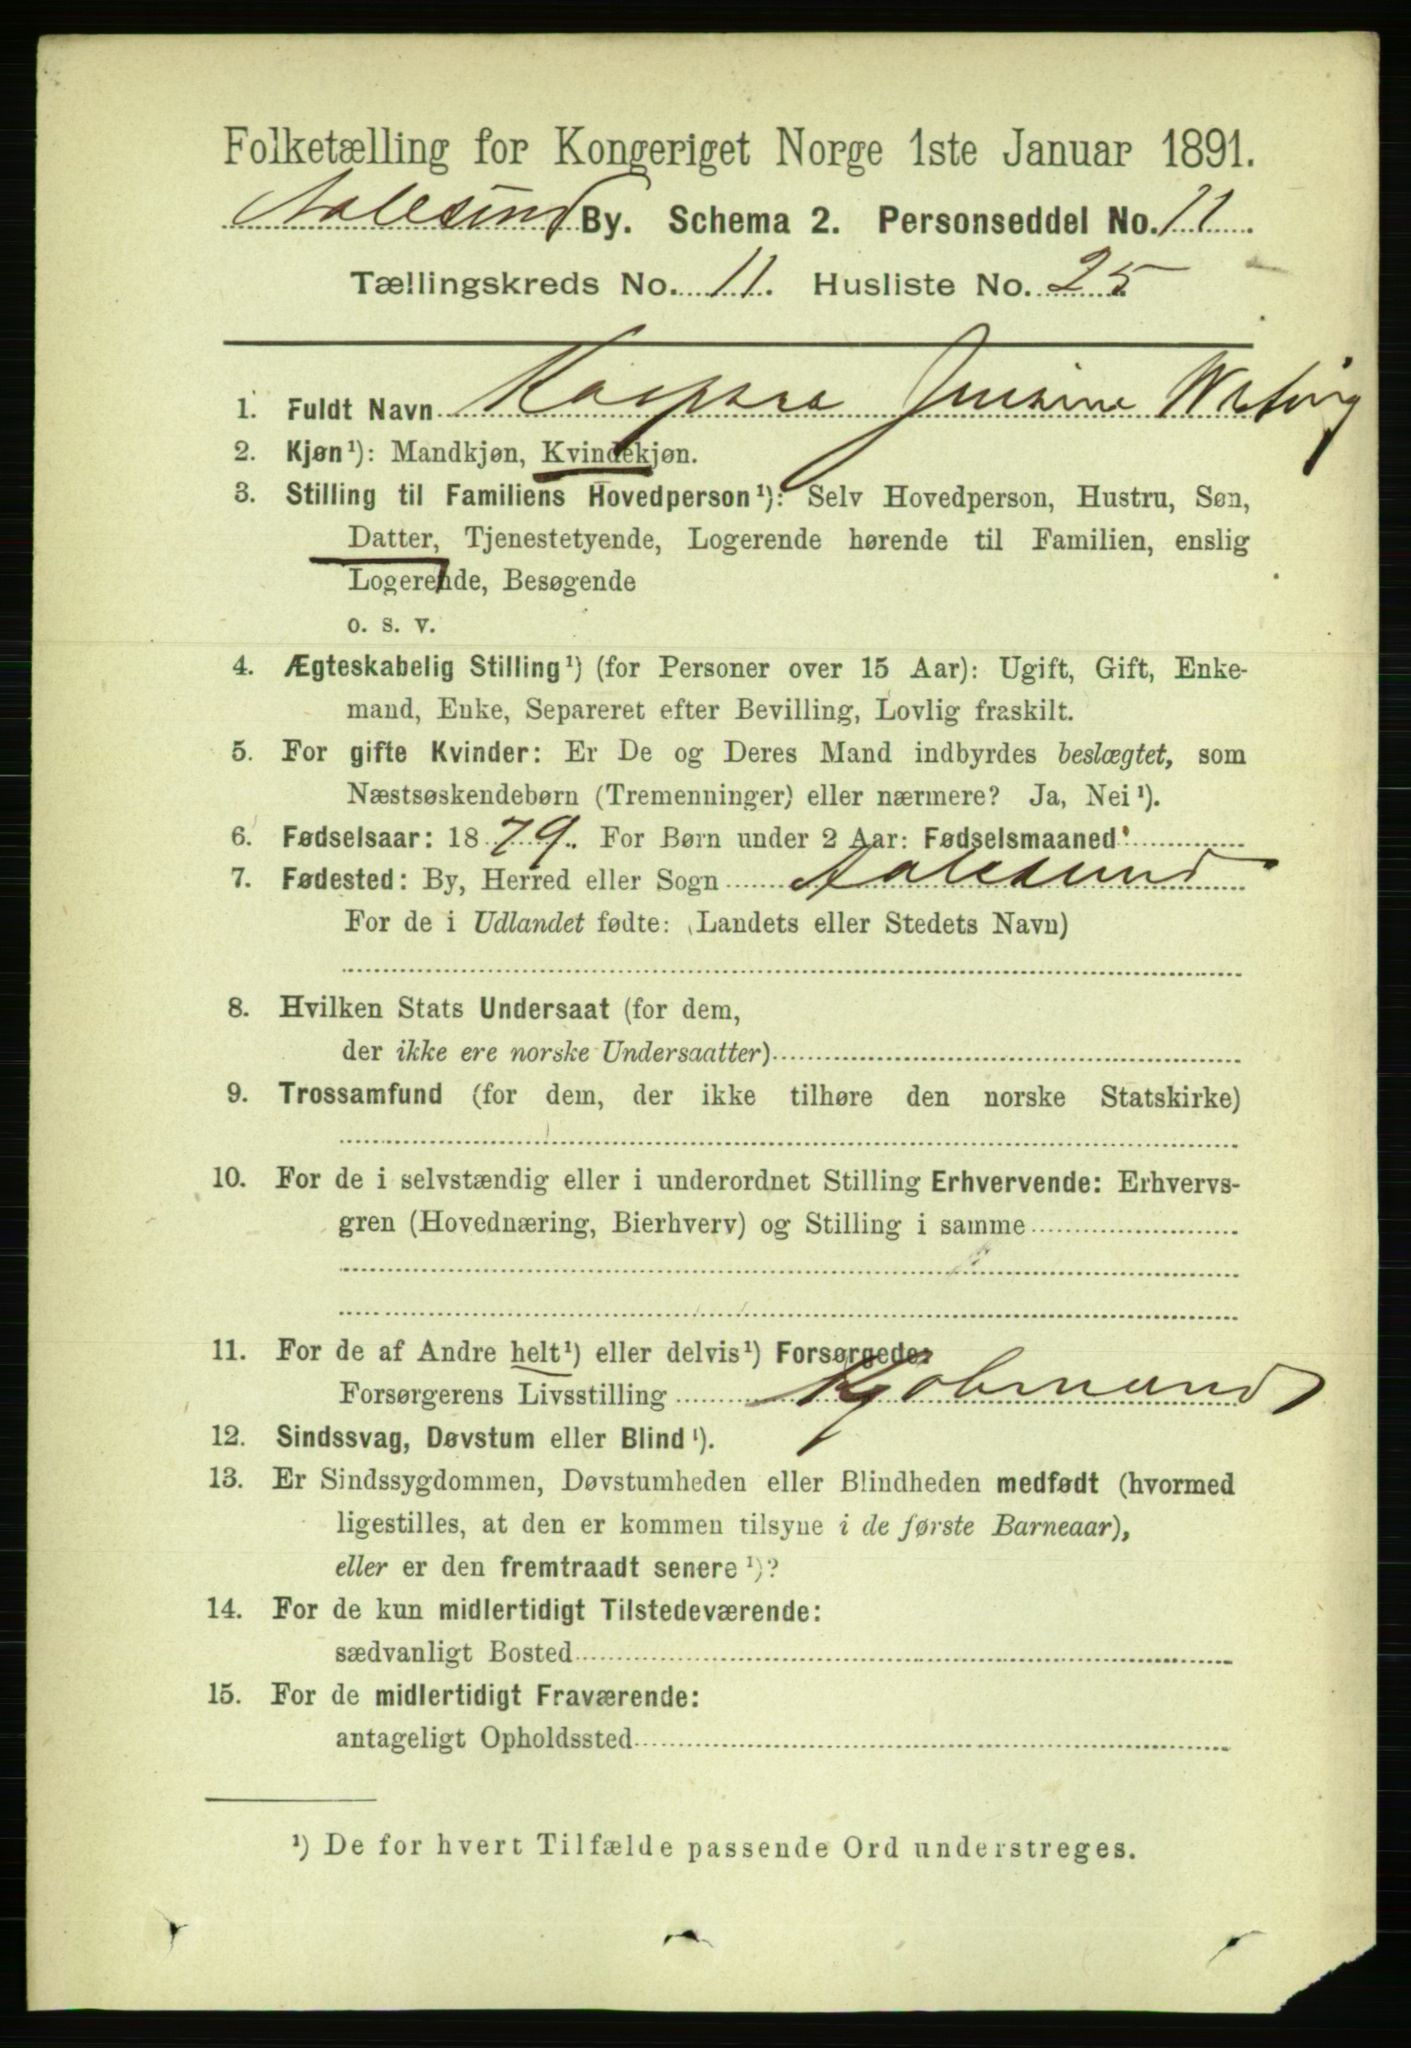 Folketælling for Kongeriget Norge 1ste Januar 1891.
Aalesund By. Schema 2. Personseddel No. 11.
Tællingskreds No. 11. Husliste No. 25
1. Fuldt Navn Kaspara
2. Kjøn¹): Mandkjøn, Kvindekjøn.
3. Stilling til Familiens Hovedperson¹): Selv Hovedperson, Hustru, Søn,
Datter, Tjenestetyende, Logerende hørende til Familien, enslig
Logerende, Besøgende
o. s. v.
4. Ægteskabelig Stilling¹) (for Personer over 15 Aar): Ugift, Gift, Enke-
mand, Enke, Separeret efter Bevilling, Lovlig fraskilt.
5. For gifte Kvinder: Er De og Deres Mand indbyrdes beslægtet, som
Næstsøskendebørn (Tremenninger) eller nærmere? Ja, Nei¹).
6. Fødselsaar: 1879. For Børn under 2 Aar: Fødselsmaaned:
7. Fødested: By, Herred eller Sogn Aalesund
For de i Udlandet fødte: (Landets eller Stedets Navn)
8. Hvilken Stats Undersaat (for dem,
der ikke ere norske Undersaatter)
9. Trossamfund (for dem, der ikke tilhøre den norske Statskirke)
10. For de i selvstændig eller i underordnet Stilling Erhvervende: Erhvervs-
gren (Hovednæring, Bierhverv) og Stilling i samme
11. For de af Andre helt¹) eller delvis¹) Forsørgede:
Forsørgerens Livsstilling Kjøbmand
12. Sindssvag, Døvstum eller Blind¹).
13. Er Sindssygdommen, Døvstumheden eller Blindheden medfødt (hvormed
ligestilles, at den er kommen tilsyne i de første Barneaar),
eller er den fremtraadt senere¹)?
14. For de kun midlertidigt Tilstedeværende:
sædvanligt Bosted
15. For de midlertidigt Fraværende:
antageligt Opholdssted
¹) De for hvert Tilfælde passende Ord understreges.